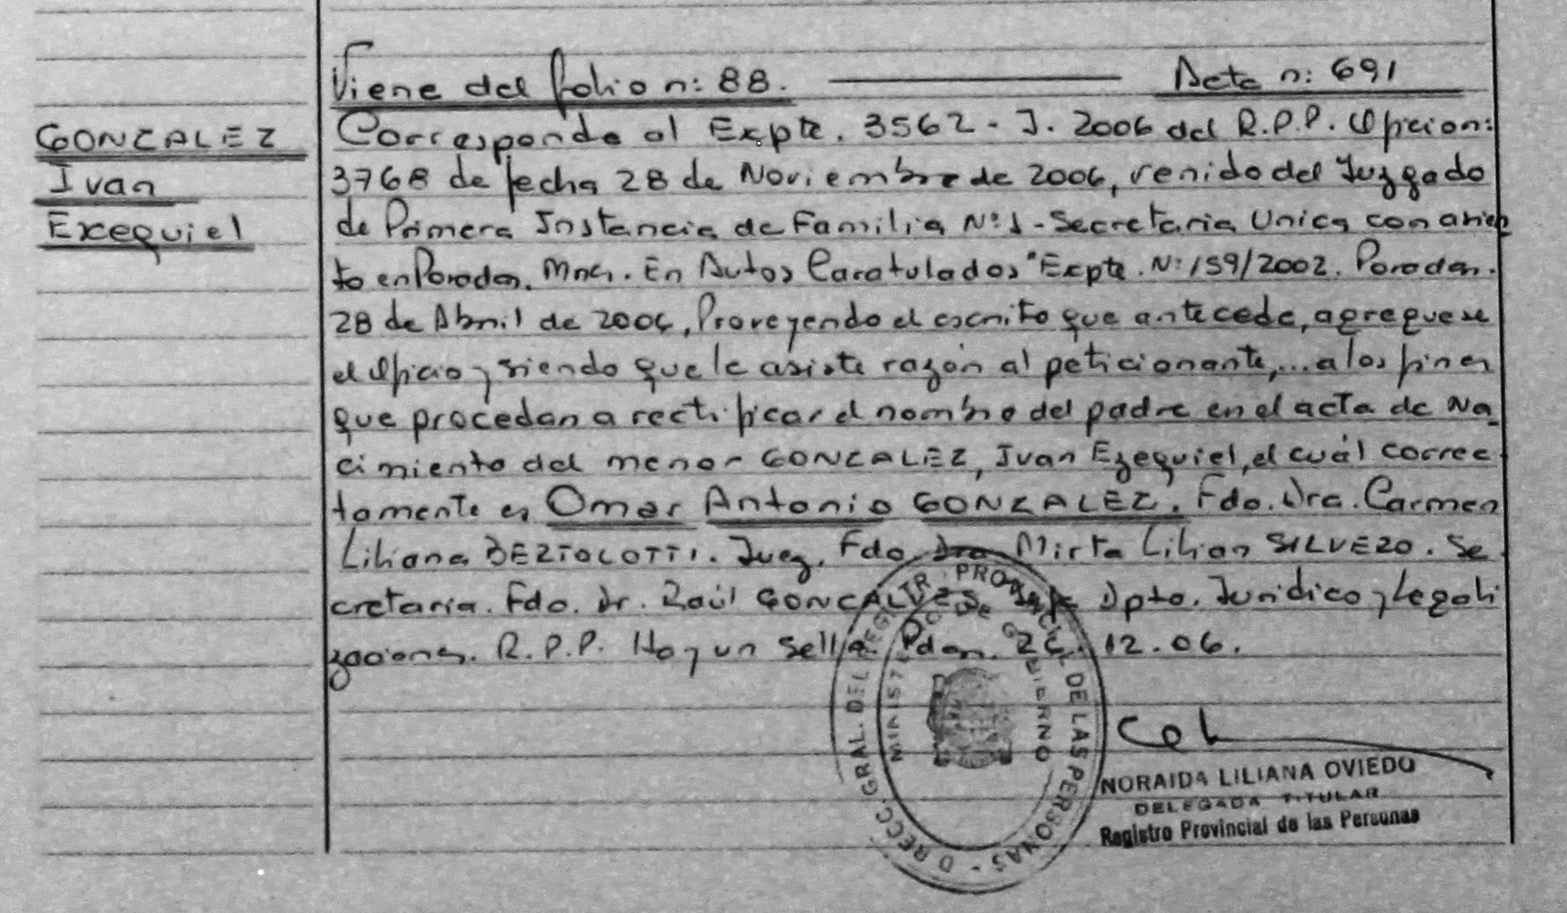 Viene del folio n: 88. Acta n: 691
GONZALEZ
Ivan
Exequiel
Corresponde al Expte. 3562 - J. 2006 del R.P.P. Oficio n:
3768 de fecha 28 de Noviembre de 2006, venido del Juzgado
de Primera Instancia de Familia Nº: 1 - Secretaria Unica con asien
to en Posadas. Mnes. En Autos Caratulados "Expte. Nº: 159/2002. Posadas.
28 de Abril de 2006, Proveyendo el escrito que antecede, agreguese
el oficio y siendo que le asiste razón al peticionante,... a los fines
que procedan a rectificar el nombre del padre en el acta de Na
cimiento del menor GONZALEZ, Ivan Ezequiel, el cuál correc
tamente es Omar Antonio GONZALEZ. Fdo. Dra. Carmen
Liliana BERTOLOTTI. Juez. Fdo. Dra Mirta Lilian SILVERO. Se
cretaria. Fdo. Dr. Raúl GONCALVES Dpto. Juridico y Legali
zaciones. R.P.P. Hay un sello. Pdas. 26.12.06.
DIRECC. GRAL. DEL REGISTR. PROVINCIAL DE LAS PERSONAS -
MINISTERIO DE GOBIERNO
NORAIDA LILIANA OVIEDO
DELEGADA TITULAR
Registro Provincial de las Personas